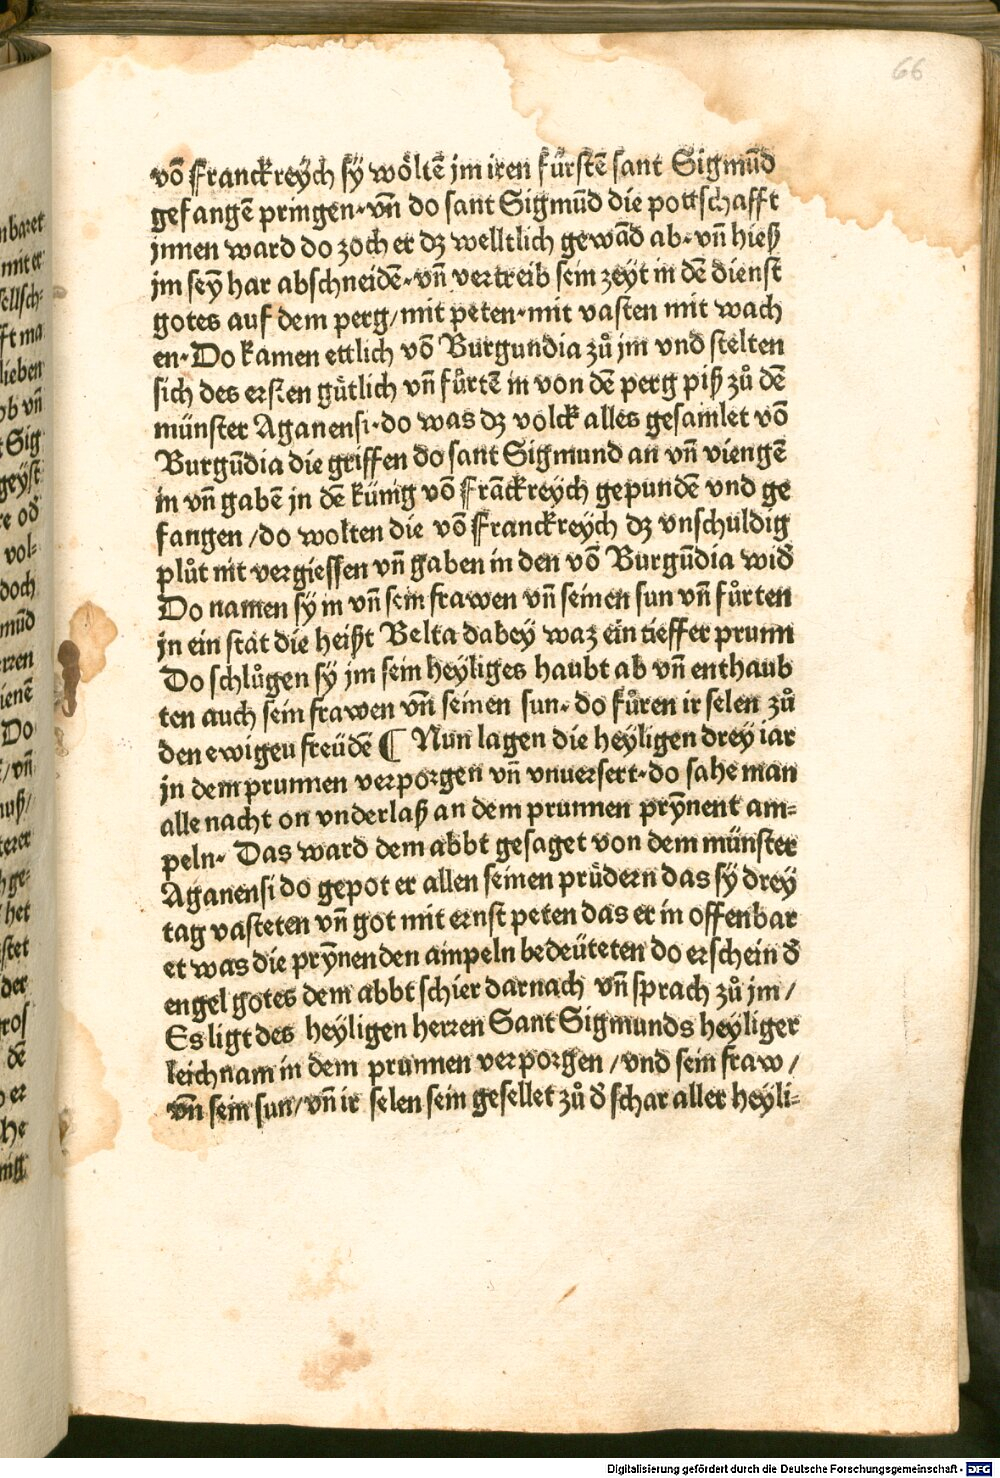 66
võ Franckreÿch sÿ wöltẽ jm iren fürstẽ sant Sigmũd
gefangẽ pringen·vñ do sant Sigmũd die pottschafft
jnnen ward do zoch er dz welltlich gewãd ab·vñ hieß
jm seÿ har abschneidẽ·vñ vertreib sein zeyt in dẽ dienst
gotes auf dem perg/mit peten·mit vasten mit wach
en·Do kamen ettlich võ Burgundia zů jm vnd stelten
sich des ersten gütlich vñ fůrtẽ in von dẽ perg piß zů dẽ
münster Aganensi·do was dz volck alles gesamlet võ
Burgũdia die griffen do sant Sigmund an vñ viengẽ
in vñ gabẽ jn dẽ künig võ Frãckreÿch gepundẽ vnd ge
fangen/do wolten die võ Franckreÿch dz vnschuldig
plůt nit vergiessen vñ gaben in den võ Burgũdia wid̕
Do namen sÿ in vñ sein frawen vñ seinen sun vñ fůrten
jn ein stat die heißt Belta dabey waz ein tieffer prunn
Do schlůgen sÿ jm sein heÿliges haubt ab vñ enthaub
ten auch sein frawen vñ seinen sun·do fůren ir selen zů
den ewigeu freüdẽ ¶ Nun lagen die heÿligen drey iar
in dem prunnen verporgen vñ vnuersert·do sahe man
alle nacht on vnderlaß an dem prunnen prÿnent am=
peln· Das ward dem abbt gesaget von dem münster
Aganensi do gepot er allen seinen prüdern das sÿ dreÿ
tag vasteten vñ got mit ernst peten das er in offenbar
et was die prÿnenden ampeln bedeüteten do erschein d̕
engel gotes dem abbt schier darnach vñ sprach zů jm/
Es ligt des heÿligen herren Sant Sigmunds heÿliger
leichnam in dem prunnen verporgen/vnd sein fraw/
vñ sein sun/vñ ir selen sein gesellet zů d̕ schar aller heÿli=
Digitalisierung gefördert durch die Deutsche Forschungsgemeinschaft - DFG